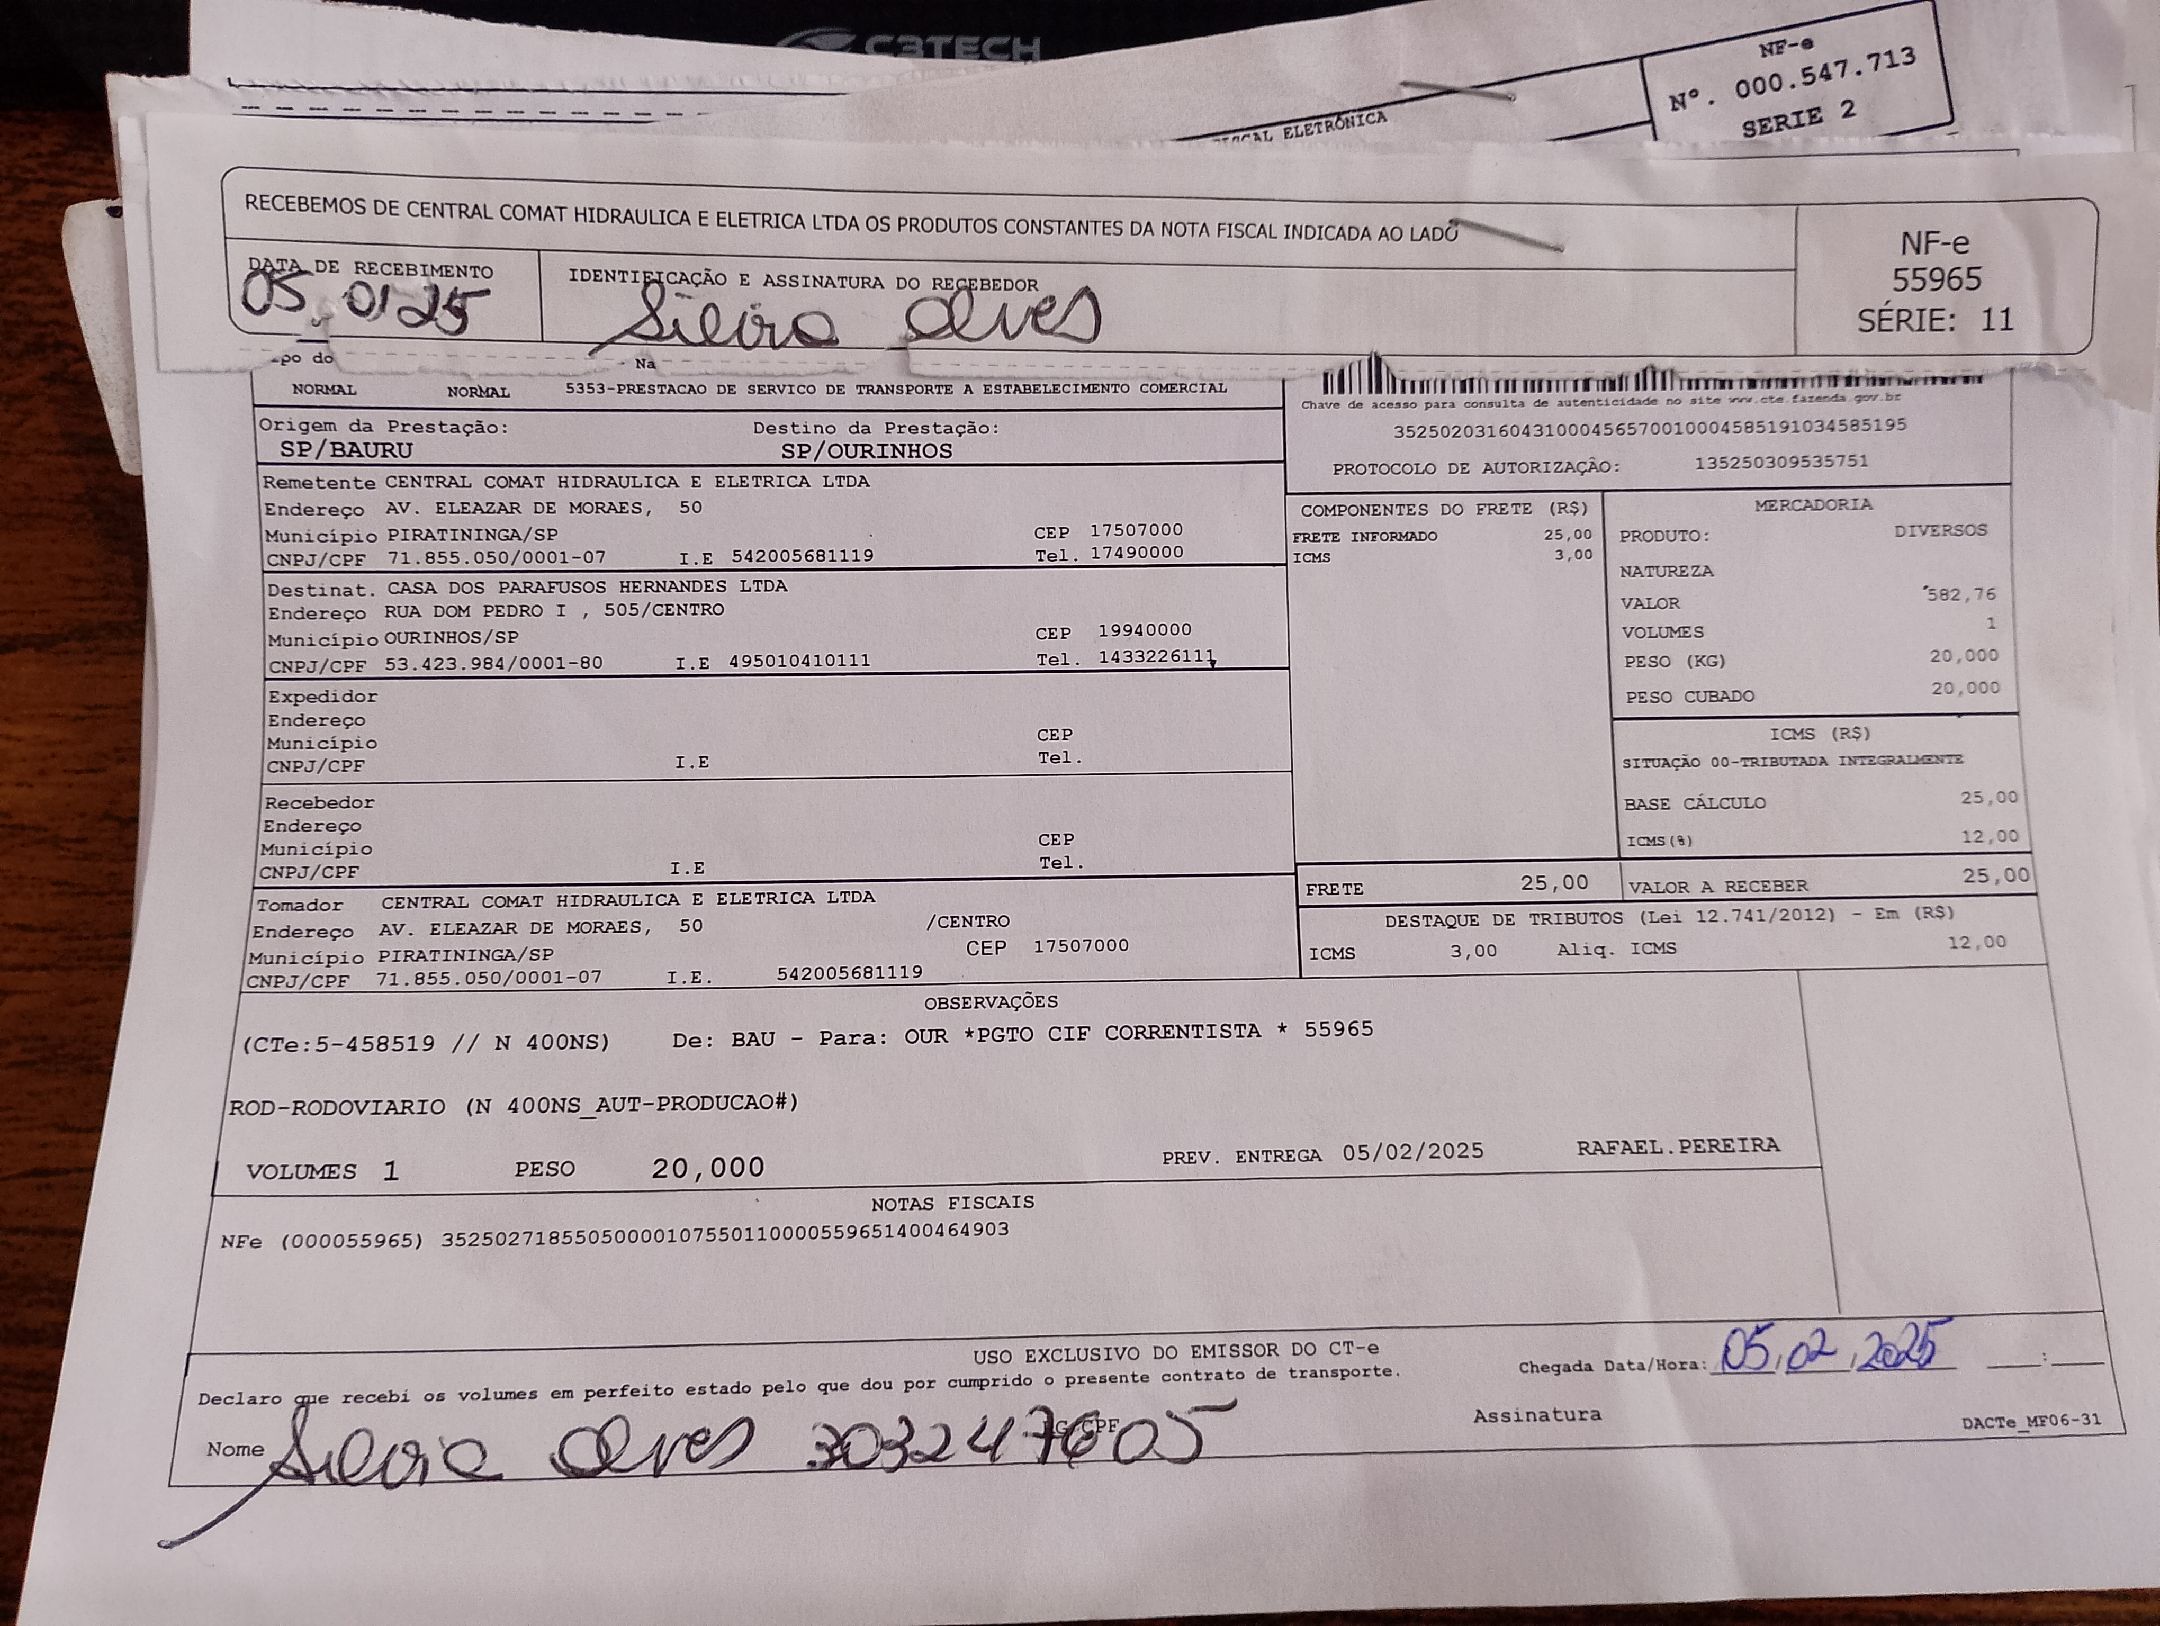 C3TECH
NF-e
Nº. 000.547.713
SERIE 2
FISCAL ELETRÔNICA
RECEBEMOS DE CENTRAL COMAT HIDRAULICA E ELETRICA LTDA OS PRODUTOS CONSTANTES DA NOTA FISCAL INDICADA AO LADO
NF-e
55965
SÉRIE: 11
DATA DE RECEBIMENTO
05 01 25
IDENTIFICAÇÃO E ASSINATURA DO RECEBEDOR
Silvia Alves
po do
Na
NORMAL NORMAL 5353-PRESTACAO DE SERVICO DE TRANSPORTE A ESTABELECIMENTO COMERCIAL
Chave de acesso para consulta de autenticidade no site www.cte.fazenda.gov.br
35250203160431000456570010004585191034585195
PROTOCOLO DE AUTORIZAÇÃO: 135250309535751
Origem da Prestação: Destino da Prestação:
SP/BAURU SP/OURINHOS
Remetente CENTRAL COMAT HIDRAULICA E ELETRICA LTDA
Endereço AV. ELEAZAR DE MORAES, 50
Município PIRATININGA/SP CEP 17507000
CNPJ/CPF 71.855.050/0001-07 I.E 542005681119 Tel. 17490000
Destinat. CASA DOS PARAFUSOS HERNANDES LTDA
Endereço RUA DOM PEDRO I , 505/CENTRO
Município OURINHOS/SP CEP 19940000
CNPJ/CPF 53.423.984/0001-80 I.E 495010410111 Tel. 1433226111
Expedidor
Endereço
Município CEP
CNPJ/CPF I.E Tel.
Recebedor
Endereço
Município CEP
CNPJ/CPF I.E Tel.
Tomador CENTRAL COMAT HIDRAULICA E ELETRICA LTDA
Endereço AV. ELEAZAR DE MORAES, 50 /CENTRO
Município PIRATININGA/SP CEP 17507000
CNPJ/CPF 71.855.050/0001-07 I.E. 542005681119
COMPONENTES DO FRETE (R$)
FRETE INFORMADO 25,00
ICMS 3,00
MERCADORIA
PRODUTO: DIVERSOS
NATUREZA
VALOR 582,76
VOLUMES 1
PESO (KG) 20,000
PESO CUBADO 20,000
ICMS (R$)
SITUAÇÃO 00-TRIBUTADA INTEGRALMENTE
BASE CÁLCULO 25,00
ICMS(%) 12,00
FRETE 25,00 VALOR A RECEBER 25,00
DESTAQUE DE TRIBUTOS (Lei 12.741/2012) - Em (R$)
ICMS 3,00 Aliq. ICMS 12,00
OBSERVAÇÕES
(CTe:5-458519 // N 400NS) De: BAU - Para: OUR *PGTO CIF CORRENTISTA * 55965
ROD-RODOVIARIO (N 400NS_AUT-PRODUCAO#)
VOLUMES 1 PESO 20,000 PREV. ENTREGA 05/02/2025 RAFAEL.PEREIRA
NOTAS FISCAIS
NFe (000055965) 35250271855050000107550110000559651400464903
USO EXCLUSIVO DO EMISSOR DO CT-e
Declaro que recebi os volumes em perfeito estado pelo que dou por cumprido o presente contrato de transporte.
Chegada Data/Hora: 05,02,2025 ___:___
Nome Silvia Alves RG/CPF Assinatura
DACTe_MF06-31